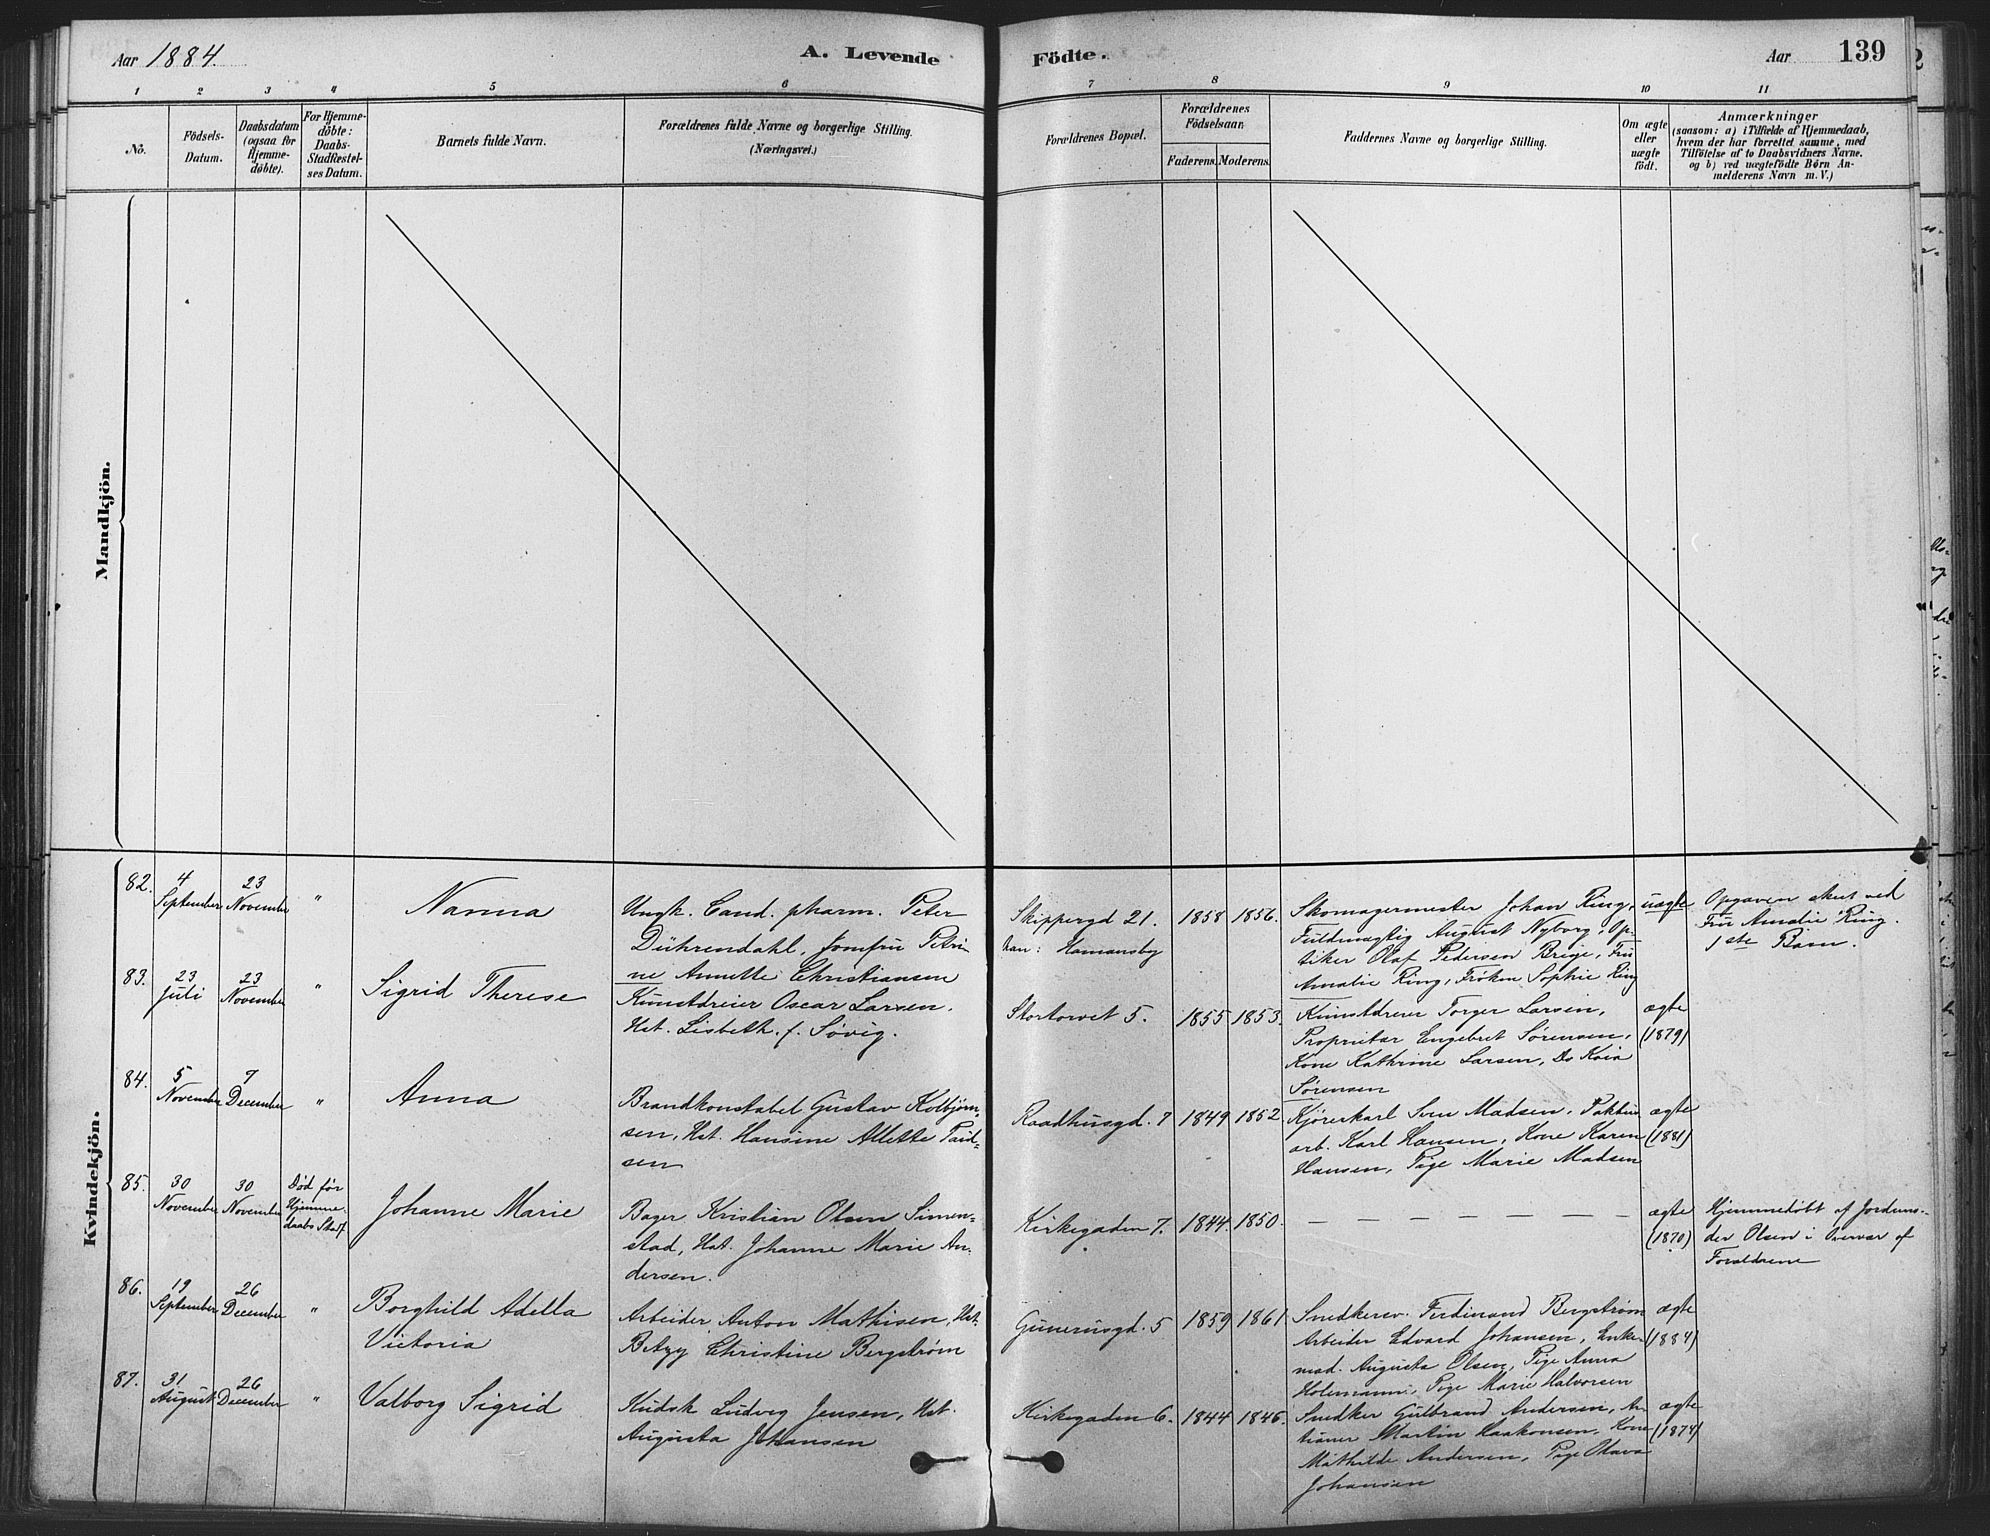 Aar 1884.
A. Levende Födte.
Aar 139
1 2 3 4 5 6 7 8 9 10 11
No.
Födsels-
Datum.
Daabsdatum
(ogsaa for
Hjemme-
döbte).
For Hjemme-
döbte:
Daabs-
Stadfæstel-
ses Datum.
Barnets fulde Navn.
Forældrenes fulde Navne og borgerlige Stilling.
(Næringsvei.)
Forældrenes Bopæl.
Forældrenes
Födselsaar.
Faderens. Moderens.
Faddernes Navne og borgerlige Stilling.
Om ægte
eller
uægte
födt.
Anmærkninger
(saasom: a) i Tilfælde af Hjemmedaab,
hvem der har forrettet samme, med
Tilföielse af to Daabsvidners Navne.
og b) ved uægtefödte Börn An-
melderens Navn m. V.)
Mandkjön.
Kvindekjön.
82.
4
September
23
November
"
Nanna
Ungk. Cand. pharm. Peter
Dührendahl, Jomfru Petri-
ne Annette Christiansen
Skippergd 21.
han: Homansby
1858 1856.
Skomagermester Johan Ring,
Fuldmægtig August Nyborg, Op-
tiker Olaf Pedersen Brige, Fru
Amalie Ring, Frøken Sophie Ring
uægte
Opgaven skeet ved
Fru Amalie Ring.
1ste Barn.
83.
23
Juli
23
November
"
Sigrid Therese
Kunstdreier Oscar Larsen,
Hst. Lisbeth f. Søvig.
Stortorvet 5.
1855 1853.
Kunstdreier Torger Larsen,
Proprietær Engebret Sørensen,
Kone Kathrine Larsen, Do Kaia
Sørensen
ægte
(1879)
84.
5
November
7
December
"
Anna
Brandkonstabel Gustav Kolbjørn-
sen, Hst. Hansine Allette
sen
Raadhusgd. 7
1849 1852
Kjørerkarl Sven Madsen,
arb. Karl Hansen, Kone Karen
Hansen, Pige Marie Madsen
ægte
(1881)
85.
30
November
30
November
Død før
Hjemme-
daabs Stadf.
Johanne Marie
Bager Kristian Olsen Simen-
stad, Hst. Johanne Marie An-
dersen.
Kirkegaden 7.
1844. 1850.
— — — — — — —
ægte
(1870)
Hjemmedøbt af Jordemo-
der Olsen i Overvær af
Forældrene
86.
19
September
26
December
"
Borghild Adella
Victoria
Arbeider Anton Mathisen, Hst.
Betzy Christine Bergstrøm
Gunerusgd. 5
1859 1861
Snedkersv. Ferdinand Bergstrøm
Arbeider Edvard Johansen, Enke-
mad. Augusta Olsen, Pige Anna
Holemann, Pige Marie Halvorsen
ægte
(1884)
87.
31
August
26
December
"
Valborg Sigrid
Kudsk Ludvig Jensen, Hst.
Augusta Johansen
Kirkegaden 6.
1844 1846.
Snedker Gulbrand Andersen, An-
tianer Martin Haakonsen, Kone
Mathilde Andersen, Pige Olava
Johansen
ægte
(1874)